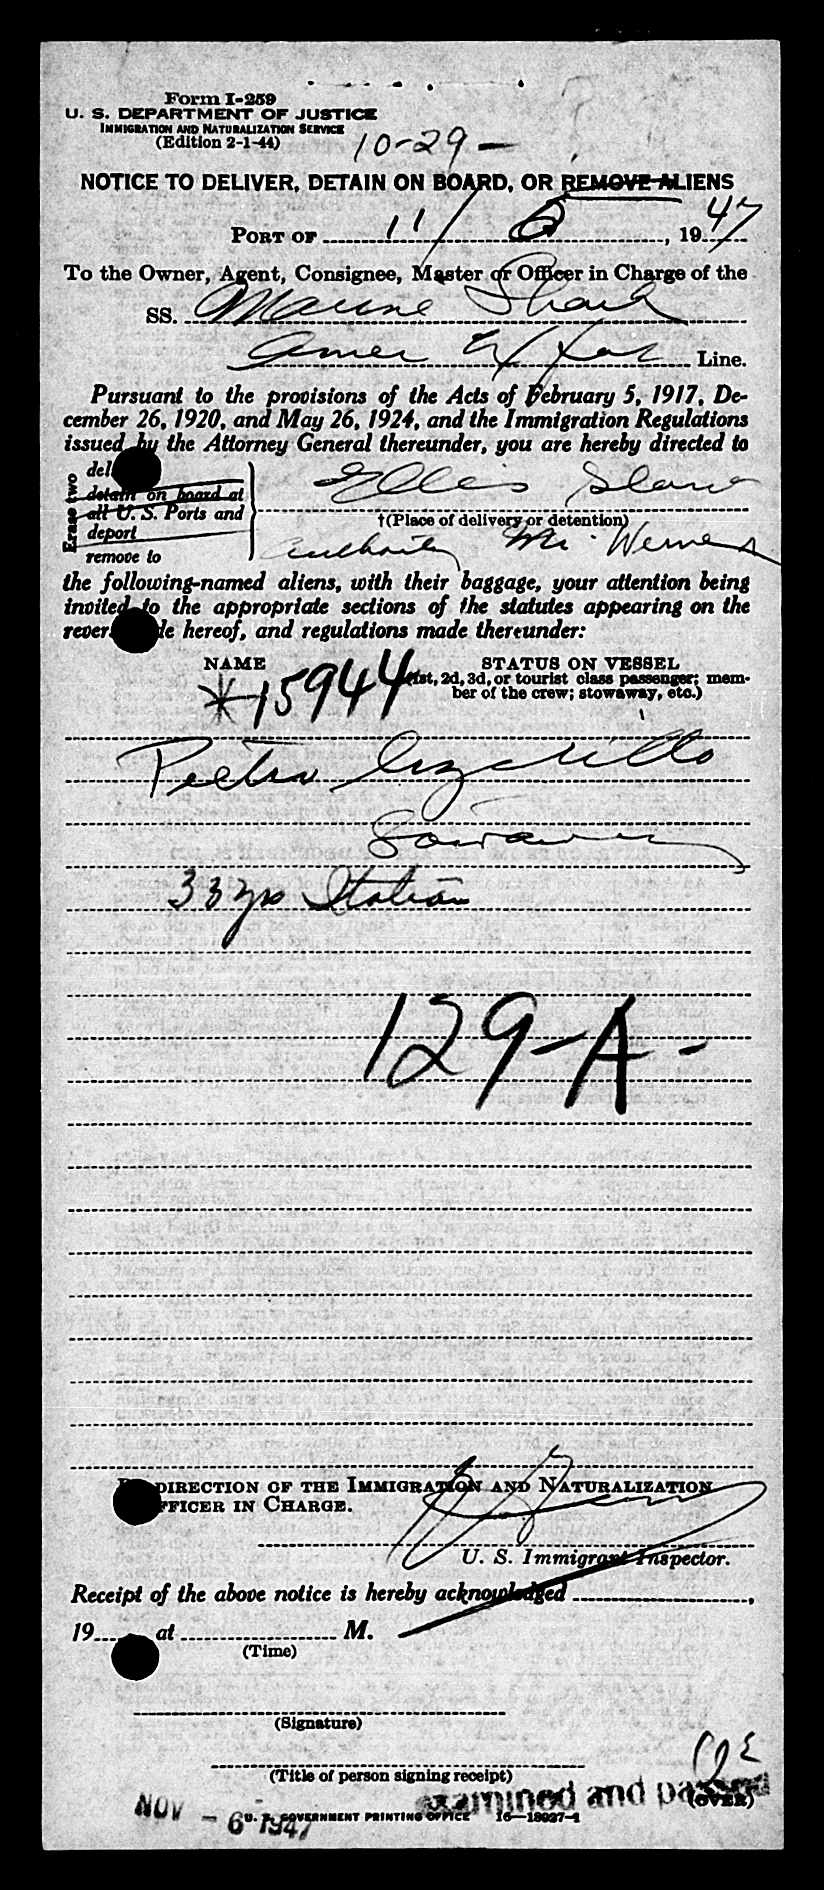 Form I-259
U. S. DEPARTMENT OF JUSTICE
IMMIGRATION AND NATURALIZATION SERVICE
(Edition 2-1-44)
10-29-
NOTICE TO DELIVER, DETAIN ON BOARD, OR REMOVE ALIENS
PORT OF 11/6, 1947
To the Owner, Agent, Consignee, Master or Officer in Charge of the
SS. Marine Shark
Amer Line.
Pursuant to the provisions of the Acts of February 5, 1917, De-
cember 26, 1920, and May 26, 1924, and the Immigration Regulations
issued by the Attorney General thereunder, you are hereby directed to
Erase two
del
detain on board at
all U. S. Ports and
deport
remove to
Ellis Island
†(Place of delivery or detention)
Authority Mr. Werner
the following-named aliens, with their baggage, your attention being
invited to the appropriate sections of the statutes appearing on the
rever de hereof, and regulations made thereunder:
NAME
STATUS ON VESSEL
(1st, 2d, 3d, or tourist class passenger; mem-
ber of the crew; stowaway, etc.)
*15944
Pietro
33 yrs Italian
129-A-
DIRECTION OF THE IMMIGRATION AND NATURALIZATION
FFICER IN CHARGE.
U. S. Immigrant Inspector.
Receipt of the above notice is hereby acknowledged ,
19 at M.
(Time)
(Signature)
(Title of person signing receipt)
examined and passed
(OVER)
NOV - 6 1947
U. S. GOVERNMENT PRINTING OFFICE 16-18027-1